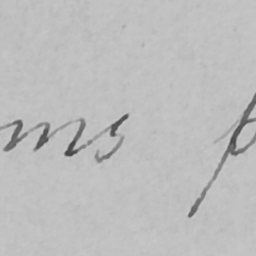 ms p